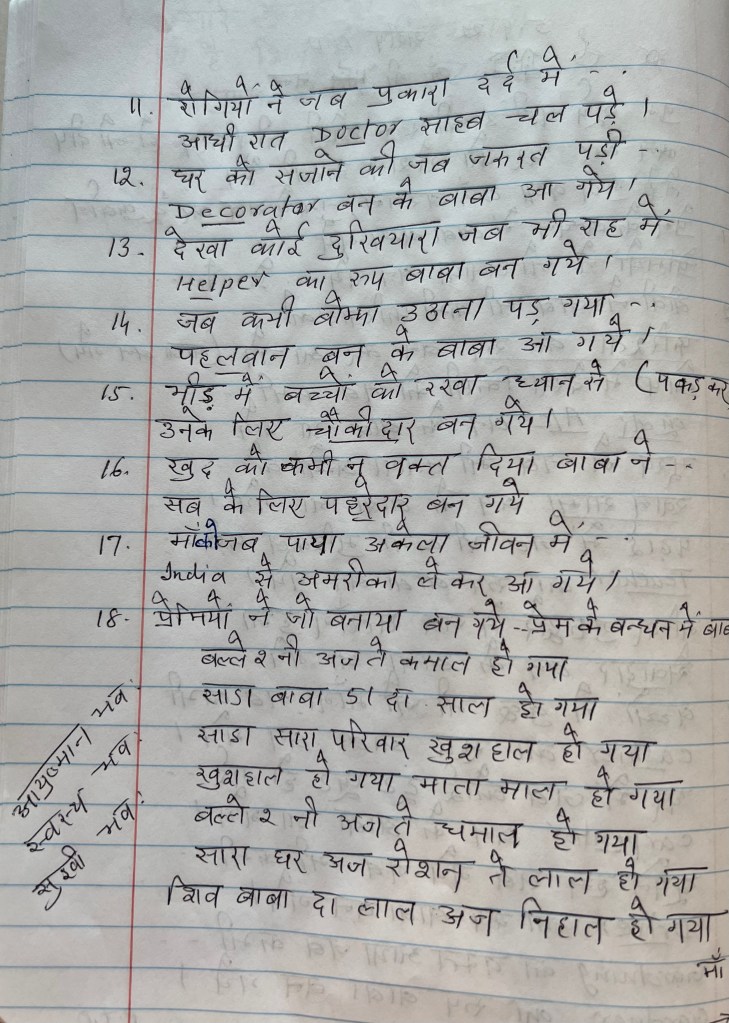 11. रोगियों ने जब पुकारा दर्द में - -
आधी रात Doctor साहब चल पड़े ।
12. घर को सजाने की जब जरूरत पड़ी - -
Decorator बन के बाबा आ गये ।
13. देखा कोई दुखियारा जब भी राह में
Helper का रूप बाबा बन गये ।
14. जब कभी बोझा उठाना पड़ गया - -
पहलवान बन के बाबा आ गये ।
15. भीड़ में बच्चों को रखा ध्यान से (पकड़ कर
उनके लिए चौकीदार बन गये ।
16. खुद को कभी न वक्त दिया बाबा ने - -
सब के लिए पहरेदार बन गये
17. माँ को जब पाया अकेला जीवन में - -
India से अमरीका ले कर आ गये ।
18. प्रेमियों ने जो बनाया बन गये -- प्रेम के बन्धन में बाब
बल्ले २ नी अज ते कमाल हो गया
साडा बाबा 51 दा साल हो गया
साडा सारा परिवार खुशहाल हो गया
खुशहाल हो गया माला माल हो गया
बल्ले २ नी अज ते धमाल हो गया
सारा घर अज रोशन ते लाल हो गया
शिव बाबा दा लाल अज निहाल हो गया
माँ
आयुष्मान भव:
स्वस्थ भव:
सुखी भव: